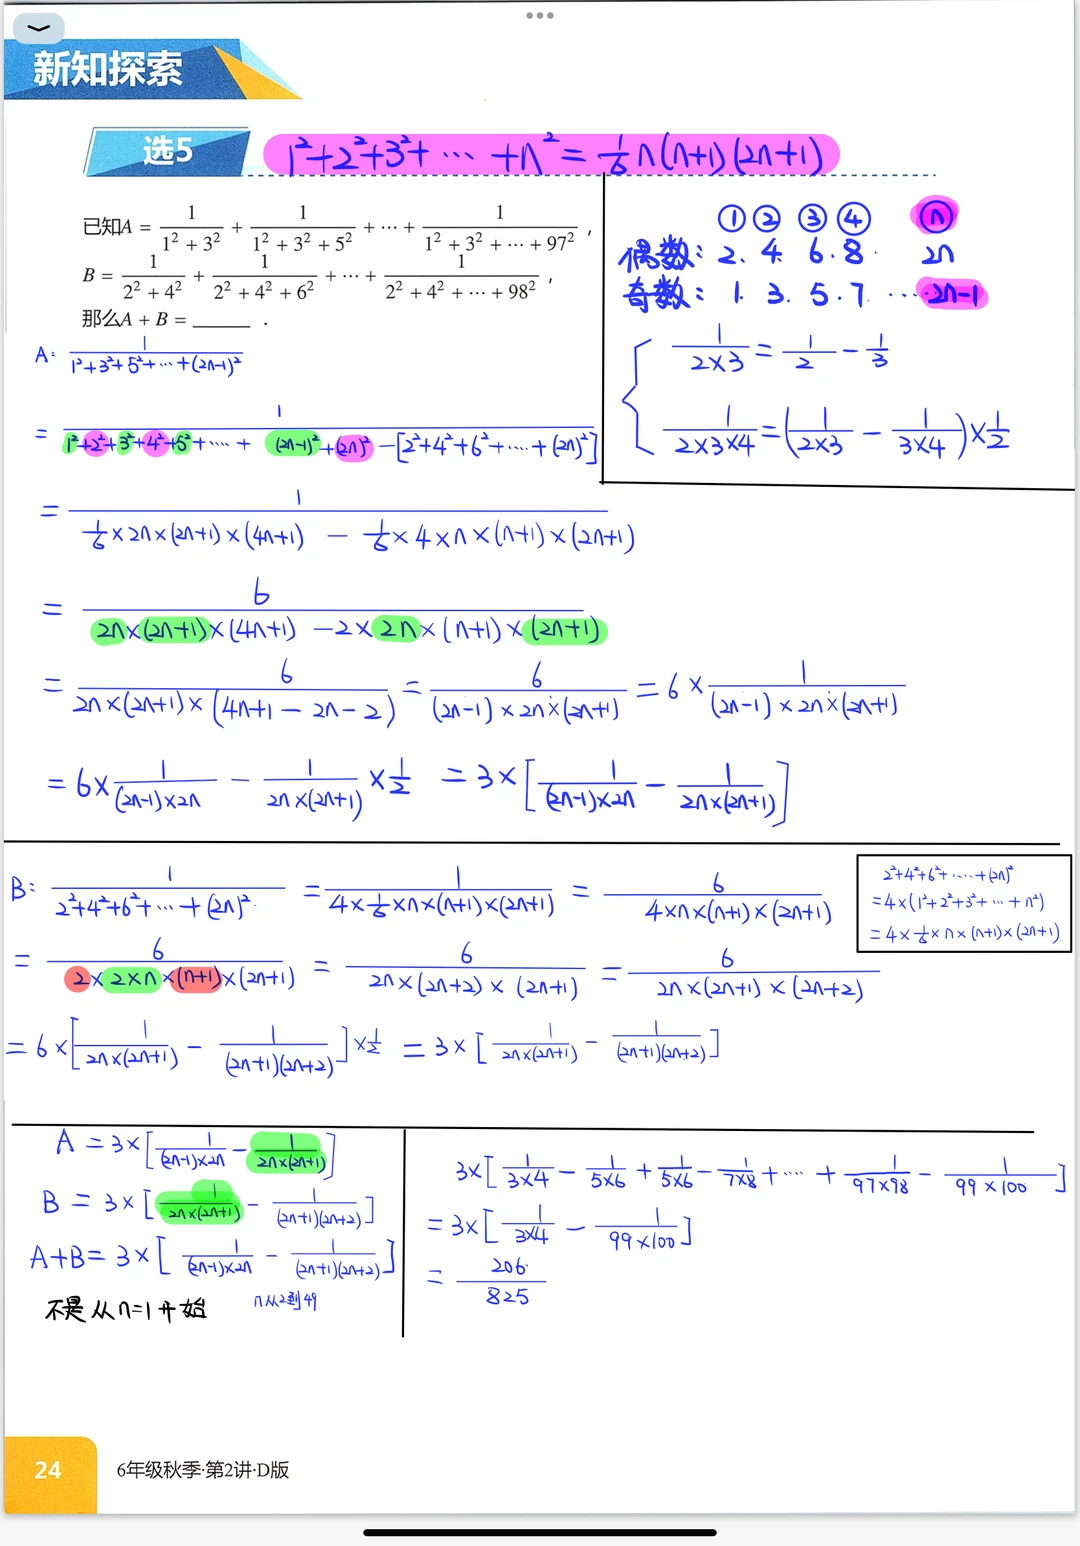 新知探索
选5
1²+2²+3²+ ⋯ +n² = 1/6 n(n+1)(2n+1)
已知A = 1/(1²+3²) + 1/(1²+3²+5²) + ⋯ + 1/(1²+3²+⋯+97²) ,
B = 1/(2²+4²) + 1/(2²+4²+6²) + ⋯ + 1/(2²+4²+⋯+98²) ,
那么A + B = ______ .
① ② ③ ④ ⓝ
偶数: 2. 4. 6. 8. 2n
奇数: 1. 3. 5. 7. ⋯ 2n-1
1/(2×3) = 1/2 - 1/3
1/(2×3×4) = (1/(2×3) - 1/(3×4))×1/2
A: 1/(1²+3²+5²+⋯+(2n-1)²)
= 1/(1²+2²+3²+4²+5²+⋯+(2n-1)²+(2n)²-[2²+4²+6²+⋯+(2n)²])
= 1/(1/6×2n×(2n+1)×(4n+1) - 1/6×4×n×(n+1)×(2n+1))
= 6/(2n×(2n+1)×(4n+1) -2×2n×(n+1)×(2n+1))
= 6/(2n×(2n+1)×(4n+1-2n-2)) = 6/((2n-1)×2n×(2n+1)) = 6× 1/((2n-1)×2n×(2n+1))
= 6× 1/((2n-1)×2n) - 1/(2n×(2n+1)) ×1/2 = 3×[1/((2n-1)×2n) - 1/(2n×(2n+1))]
B: 1/(2²+4²+6²+⋯+(2n)²) = 1/(4×1/6×n×(n+1)×(2n+1)) = 6/(4×n×(n+1)×(2n+1))
2²+4²+6²+⋯+(2n)²
=4×(1²+2²+3²+⋯+n²)
=4×1/6×n×(n+1)×(2n+1)
= 6/(2×2×n×(n+1)×(2n+1)) = 6/(2n×(2n+2)×(2n+1)) = 6/(2n×(2n+1)×(2n+2))
= 6×[1/(2n×(2n+1)) - 1/((2n+1)(2n+2))]×1/2 = 3×[1/(2n×(2n+1)) - 1/((2n+1)(2n+2))]
A = 3×[1/((2n-1)×2n) - 1/(2n×(2n+1))]
B = 3×[1/(2n×(2n+1)) - 1/((2n+1)(2n+2))]
A+B= 3×[1/((2n-1)×2n) - 1/((2n+1)(2n+2))]
不是从n=1开始
n从2到49
3×[1/(3×4) - 1/(5×6) + 1/(5×6) - 1/(7×8) + ⋯ + 1/(97×98) - 1/(99×100)]
= 3×[1/(3×4) - 1/(99×100)]
= 206/825
24
6年级秋季·第2讲·D版